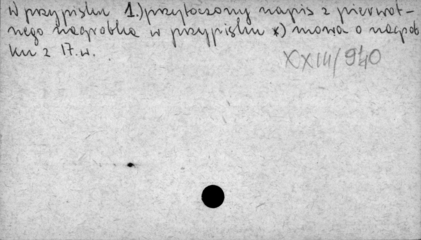 W przypisku 1.) przytoczony napis z pierwot-
nego nagrobka w przypisku x) mowa o nagrob
ku z 17.w.
XXIII/940